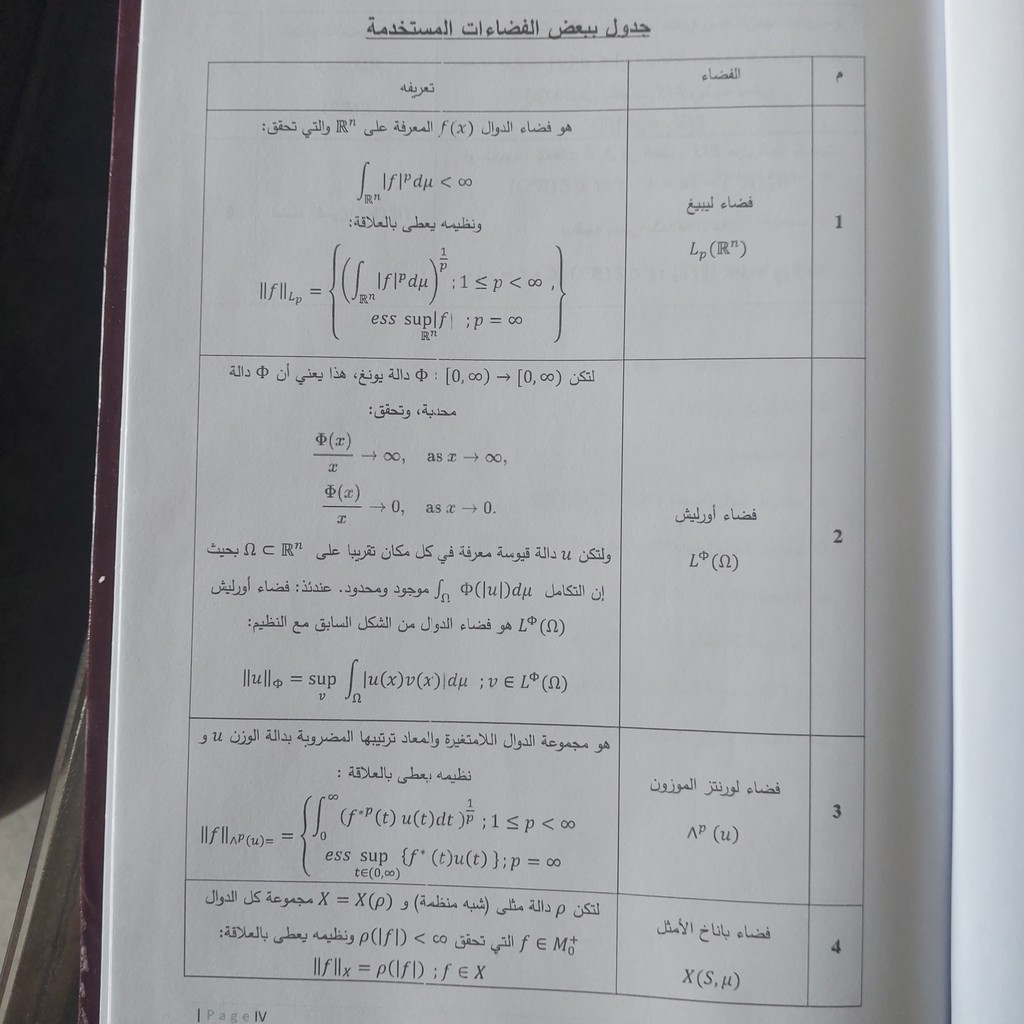 جدول ببعض الفضاءات المستخدمة
م | الفضاء | تعريفه
1
فضاء ليبيغ
Lₚ(ℝⁿ)
هو فضاء الدوال f(x) المعرفة على ℝⁿ والتي تحقق:
∫_{ℝⁿ} |f|ᵖ dμ < ∞
ونظيمه يعطى بالعلاقة:
‖f‖_{Lₚ} = { (∫_{ℝⁿ} |f|ᵖ dμ)^{1/p} ; 1 ≤ p < ∞ ,
ess sup_{ℝⁿ} |f| ; p = ∞ }
2
فضاء أورليش
L^Φ(Ω)
لتكن Φ : [0, ∞) → [0, ∞) دالة يونغ، هذا يعني أن Φ دالة
محدبة، وتحقق:
Φ(x)/x → ∞, as x → ∞,
Φ(x)/x → 0, as x → 0.
ولتكن u دالة قيوسة معرفة في كل مكان تقريبا على Ω ⊂ ℝⁿ بحيث
إن التكامل ∫_Ω Φ(|u|)dμ موجود ومحدود. عندئذ: فضاء أورليش
L^Φ(Ω) هو فضاء الدوال من الشكل السابق مع النظيم:
‖u‖_Φ = sup_v ∫_Ω |u(x)v(x)|dμ ; v ∈ L^Φ(Ω)
3
فضاء لورنتز الموزون
Λᵖ (u)
هو مجموعة الدوال اللامتغيرة والمعاد ترتيبها المضروبة بدالة الوزن u و
نظيمه يعطى بالعلاقة :
‖f‖_{Λᵖ(u)=} = { ∫₀^∞ (f*ᵖ(t) u(t)dt )^{1/p} ; 1 ≤ p < ∞
ess sup_{t∈(0,∞)} {f* (t)u(t) }; p = ∞
4
فضاء باناخ الأمثل
X(S, μ)
لتكن ρ دالة مثلى (شبه منظمة) و X = X(ρ) مجموعة كل الدوال
f ∈ M₀⁺ التي تحقق ρ(|f|) < ∞ ونظيمه يعطى بالعلاقة:
‖f‖_X = ρ(|f|) ; f ∈ X
| Page IV